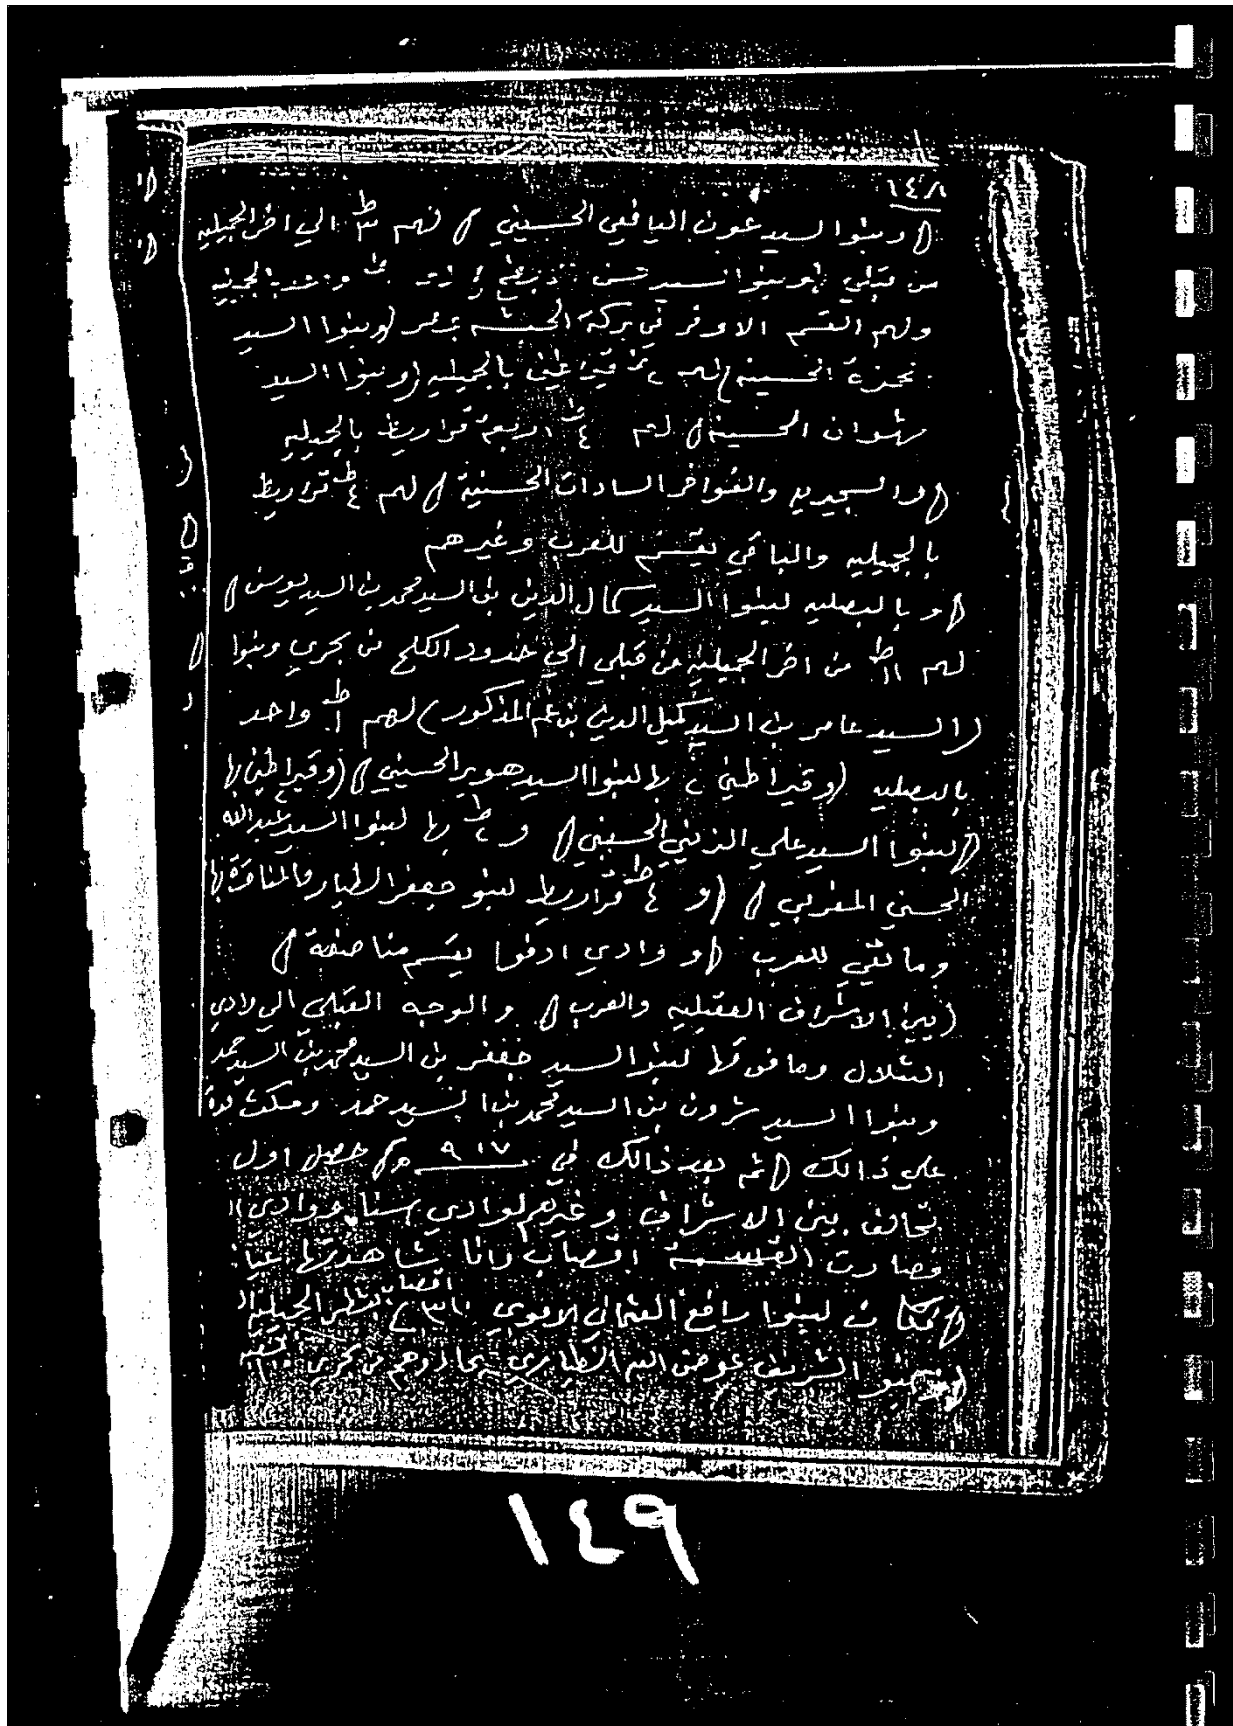 ١٤٨
وبنوا السيد عون اليافعي الحسيني لهم ٣ ط الي اخر الجميليه
من قبلي وبنوا السيد حسن
ولهم القسم الاوفر في بركة الحبش بمصر وبنوا السيد
حمزة الحسينيه لهم ٢ ط قيراطين بالجميليه وبنوا السيد
شهوان الحسينيه لهم ٤ ط اربعة قراريط بالجميليه
والفواخر السادات الحسنية لهم ٤ ط قراريط
بالجميليه والباقي يقسم للعرب وغيرهم
وبالبصليه لبنوا السيد كمال الدين بن السيد محمد بن السيد يونس
لهم ١١ ط من اخر الجميليه من قبلي الي حدود الكلح من بحري وبنوا
السيد عامر بن السيد كميل الدين بن عم المذكور لهم ١ ط واحد
بالبصليه وقيراطين ٢ بها لبنوا السيد هوير الحسيني وقيراطين بها
لبنوا السيد علي الزينبي الحسيني و ٢ ط بها لبنوا السيد عبدالله
الحسني المغربي و ٤ ط قراريط لبنو جعفر الطيار
وما بقي للعرب و وادي ادفوا يقسم مناصفة
بين الاشراف العقيليه والعرب والوجه القبلي الي وادي
الشلال وما فوقها لبنوا السيد جعفر بن السيد محمد بن السيد حمد
وبنوا السيد شرون بن السيد محمد بن السيد حمد ومكث
علي ذالك ثم بعد ذالك في ٩١٧ هـ حصل اول
تحالف بين الاشراف وغيرهم لوادي اسنا ووادي
فصارت القسمة اقصاب وانا شاهدتها
فكانت لبنوا رافع العثماني الاموي ٣٦٠ اقصاب
وبنو الشريف عوض اليم الطياري بجاروهم من بحري
١٤٩